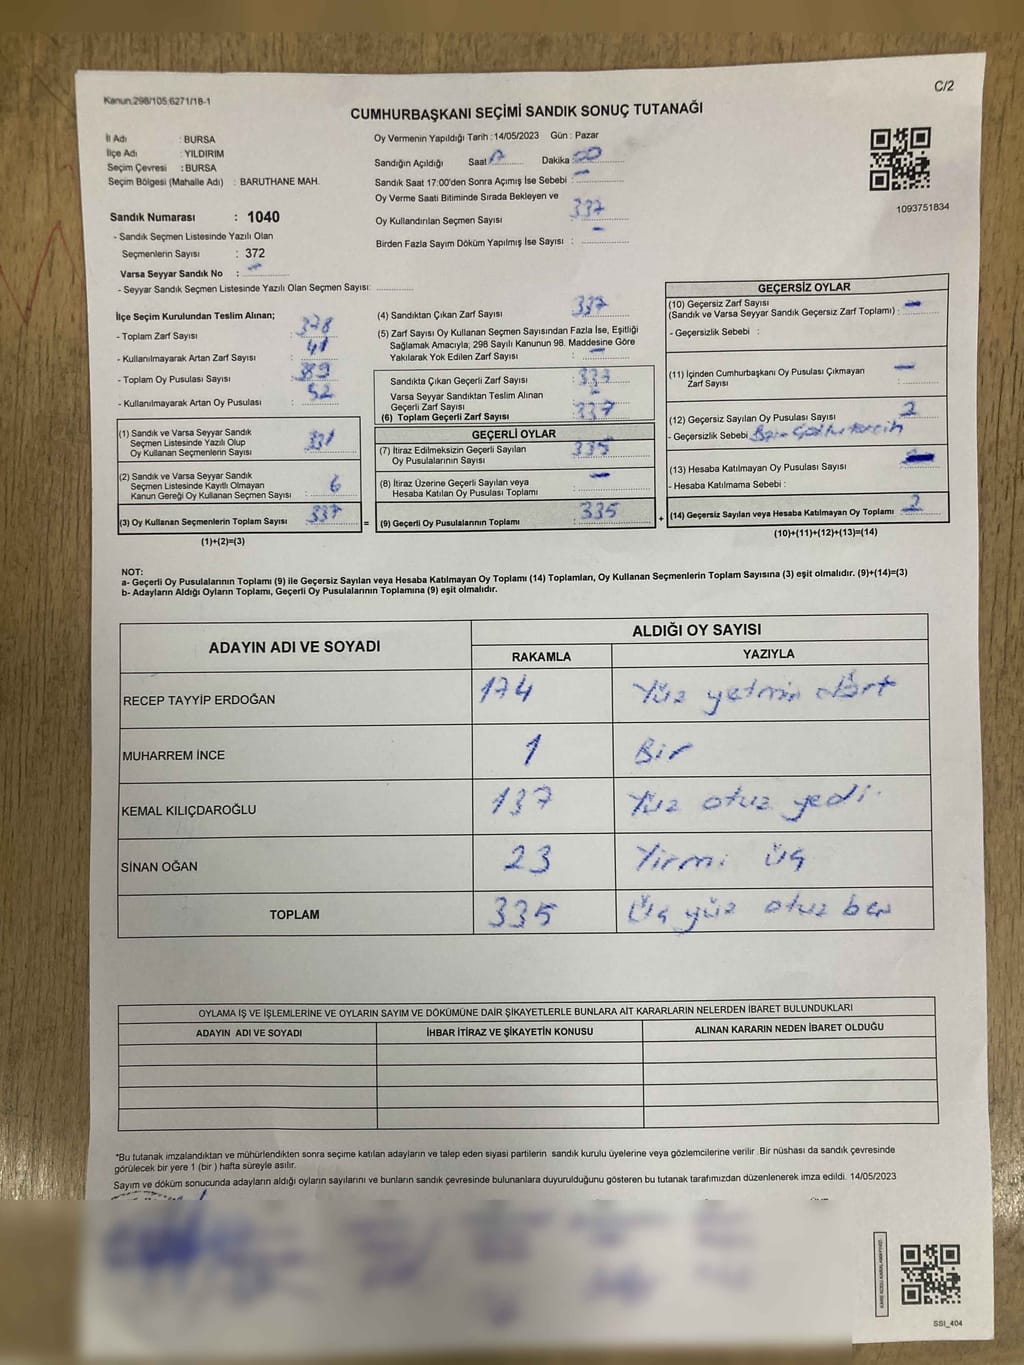 Kanun:298/105;6271/18-1
C/2
CUMHURBAŞKANI SEÇİMİ SANDIK SONUÇ TUTANAĞI
İl Adı : BURSA
İlçe Adı : YILDIRIM
Seçim Çevresi : BURSA
Seçim Bölgesi (Mahalle Adı) : BARUTHANE MAH.
Sandık Numarası : 1040
- Sandık Seçmen Listesinde Yazılı Olan
Seçmenlerin Sayısı : 372
Varsa Seyyar Sandık No : -
- Seyyar Sandık Seçmen Listesinde Yazılı Olan Seçmen Sayısı:
Oy Vermenin Yapıldığı Tarih : 14/05/2023 Gün : Pazar
Sandığın Açıldığı Saat 17 Dakika : 00
Sandık Saat 17:00'den Sonra Açımış İse Sebebi : -
Oy Verme Saati Bitiminde Sırada Bekleyen ve
Oy Kullandırılan Seçmen Sayısı 337
Birden Fazla Sayım Döküm Yapılmış İse Sayısı : -
1093751834
İlçe Seçim Kurulundan Teslim Alınan;
- Toplam Zarf Sayısı : 378
- Kullanılmayarak Artan Zarf Sayısı : 41
- Toplam Oy Pusulası Sayısı :
- Kullanılmayarak Artan Oy Pusulası : 52
(1) Sandık ve Varsa Seyyar Sandık
Seçmen Listesinde Yazılı Olup
Oy Kullanan Seçmenlerin Sayısı : 331
(2) Sandık ve Varsa Seyyar Sandık
Seçmen Listesinde Kayıtlı Olmayan
Kanun Gereği Oy Kullanan Seçmen Sayısı : 6
(3) Oy Kullanan Seçmenlerin Toplam Sayısı : 337 =
(1)+(2)=(3)
(4) Sandıktan Çıkan Zarf Sayısı : 337
(5) Zarf Sayısı Oy Kullanan Seçmen Sayısından Fazla İse, Eşitliği
Sağlamak Amacıyla; 298 Sayılı Kanunun 98. Maddesine Göre
Yakılarak Yok Edilen Zarf Sayısı : -
Sandıkta Çıkan Geçerli Zarf Sayısı : 337
Varsa Seyyar Sandıktan Teslim Alınan
Geçerli Zarf Sayısı : -
(6) Toplam Geçerli Zarf Sayısı : 337
GEÇERLİ OYLAR
(7) İtiraz Edilmeksizin Geçerli Sayılan
Oy Pusulalarının Sayısı : 335
(8) İtiraz Üzerine Geçerli Sayılan veya
Hesaba Katılan Oy Pusulası Toplamı : -
(9) Geçerli Oy Pusulalarının Toplamı : 335 +
GEÇERSİZ OYLAR
(10) Geçersiz Zarf Sayısı
(Sandık ve Varsa Seyyar Sandık Geçersiz Zarf Toplamı) : -
- Geçersizlik Sebebi :
(11) İçinden Cumhurbaşkanı Oy Pusulası Çıkmayan
Zarf Sayısı : -
(12) Geçersiz Sayılan Oy Pusulası Sayısı : 2
- Geçersizlik Sebebi
(13) Hesaba Katılmayan Oy Pusulası Sayısı :
- Hesaba Katılmama Sebebi :
(14) Geçersiz Sayılan veya Hesaba Katılmayan Oy Toplamı : 2
(10)+(11)+(12)+(13)=(14)
NOT:
a- Geçerli Oy Pusulalarının Toplamı (9) ile Geçersiz Sayılan veya Hesaba Katılmayan Oy Toplamı (14) Toplamları, Oy Kullanan Seçmenlerin Toplam Sayısına (3) eşit olmalıdır. (9)+(14)=(3)
b- Adayların Aldığı Oyların Toplamı, Geçerli Oy Pusulalarının Toplamına (9) eşit olmalıdır.
ADAYIN ADI VE SOYADI
ALDIĞI OY SAYISI
RAKAMLA YAZIYLA
RECEP TAYYİP ERDOĞAN 174 Yüz yetmiş dört
MUHARREM İNCE 1 Bir
KEMAL KILIÇDAROĞLU 137 Yüz otuz yedi
SİNAN OĞAN 23 Yirmi üç
TOPLAM 335 Üç yüz otuz beş
OYLAMA İŞ VE İŞLEMLERİNE VE OYLARIN SAYIM VE DÖKÜMÜNE DAİR ŞİKAYETLERLE BUNLARA AİT KARARLARIN NELERDEN İBARET BULUNDUKLARI
ADAYIN ADI VE SOYADI İHBAR İTİRAZ VE ŞİKAYETİN KONUSU ALINAN KARARIN NEDEN İBARET OLDUĞU
*Bu tutanak imzalandıktan ve mühürlendikten sonra seçime katılan adayların ve talep eden siyasi partilerin sandık kurulu üyelerine veya gözlemcilerine verilir .Bir nüshası da sandık çevresinde
görülecek bir yere 1 (bir ) hafta süreyle asılır.
Sayım ve döküm sonucunda adayların aldığı oyların sayılarını ve bunların sandık çevresinde bulunanlara duyurulduğunu gösteren bu tutanak tarafımızdan düzenlenerek imza edildi. 14/05/2023
SSI_404